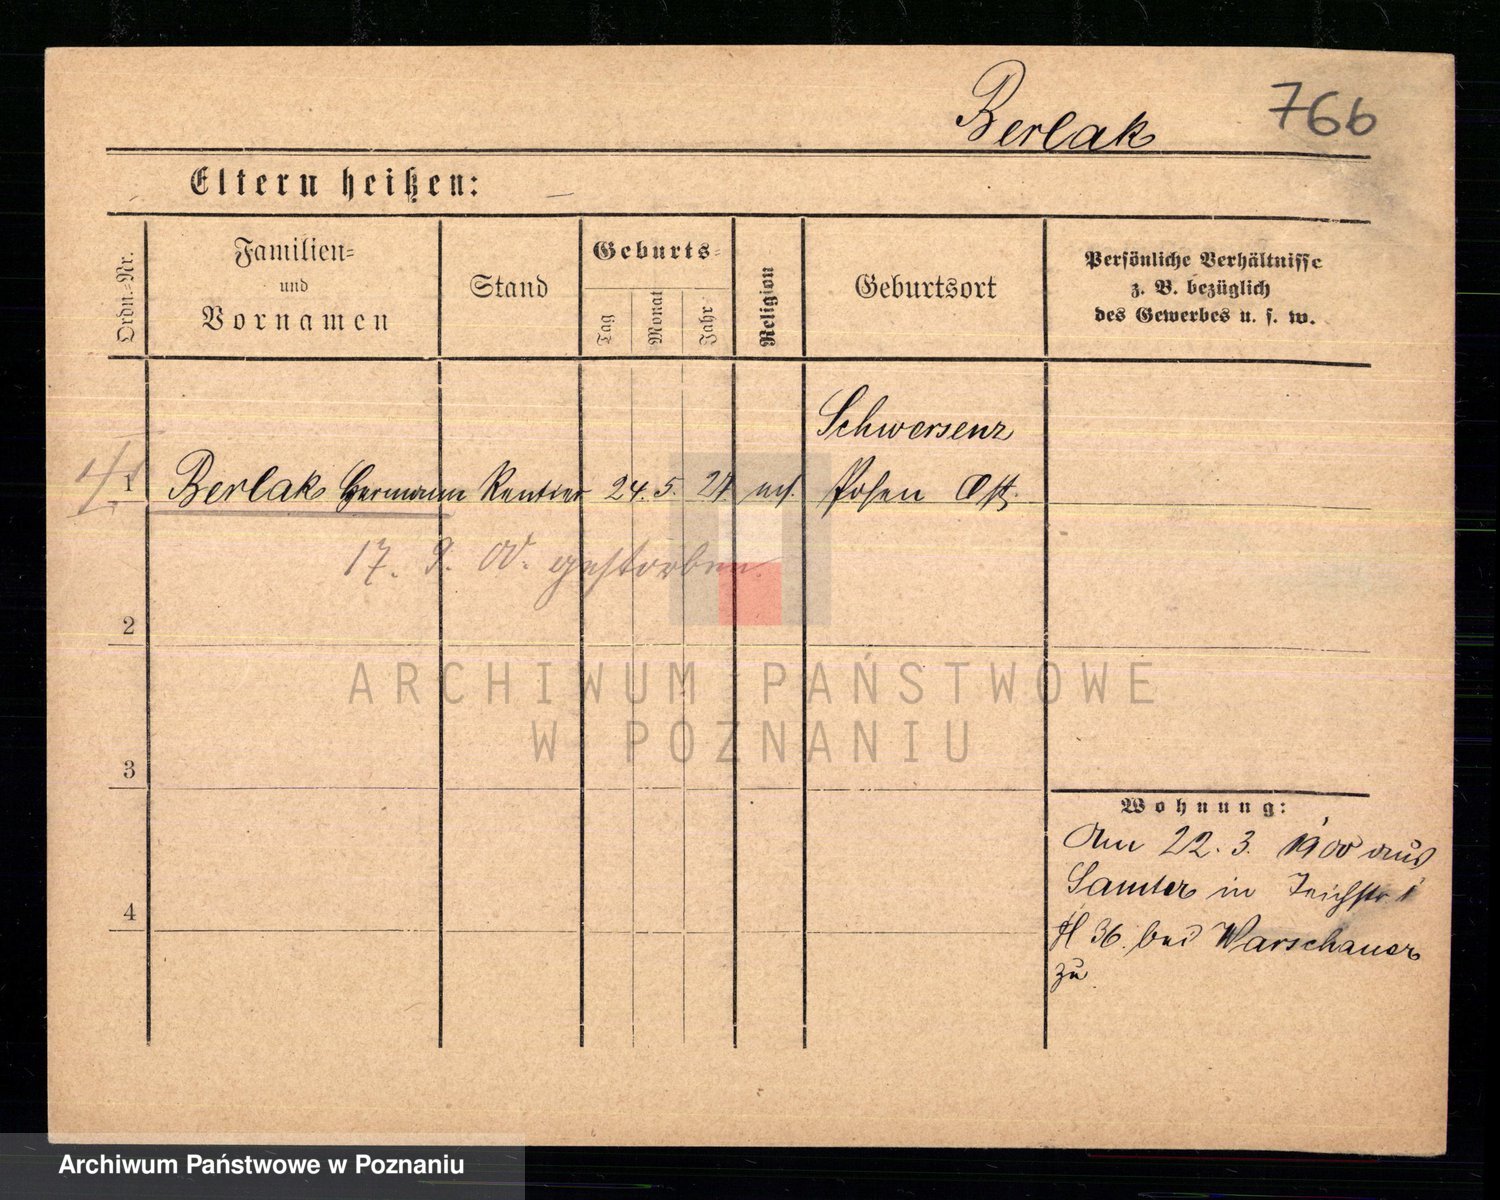 Berlak 766
Eltern heißen: —
Ordn.=Nr.
Familien=
und
Vornamen
Stand
Geburts=
Tag
Monat
Jahr
Religion
Geburtsort
Persönliche Verhältnisse
z. B. bezüglich
des Gewerbes u. s. w.
Schwersenz
1 Berlak Hermann Rentier 24. 5. Posen Ost.
17. 9. 00. gestorben
2
3
4
Wohnung:
Am 22. 3. 1900 aus
Samter in Teichstr.
36. bei Warschauer
zu
ARCHIWUM PAŃSTWOWE
W POZNANIU
Archiwum Państwowe w Poznaniu